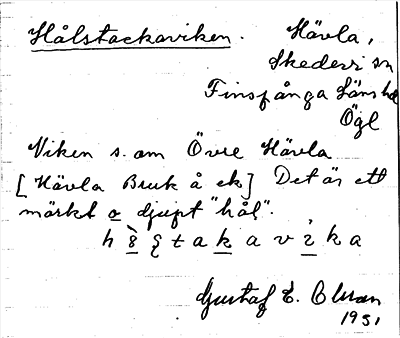 Hålstackaviken. Hävla,
Skedevi sn
Finspånga läns hd
Ögl
Viken s. om Övre Hävla
[Hävla Bruk å ek] Det är ett
märkt o djupt "hål".
Gustaf E. Olsson
1931